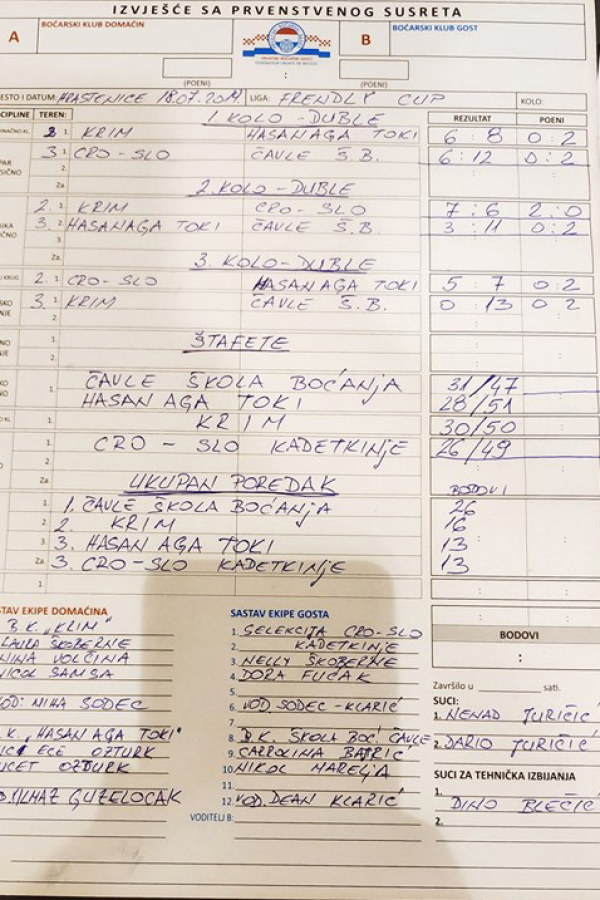 IZVJEŠĆE SA PRVENSTVENOG SUSRETA
A BOĆARSKI KLUB DOMAĆIN B BOĆARSKI KLUB GOST
(POENI) : (POENI)
ESTO I DATUM: HRASTENICE LIGA: FRENDLY CUP KOLO:
CIPLINE TEREN: 1. KOLO - DUBLE REZULTAT POENI
2 1. KRIM HASANAGA TOKI 6 : 8 0 : 2
3 1. CRO-SLO ČAVLE Š.B. 6 : 12 0 : 2
2.
2a 2. KOLO - DUBLE
2. 1. KRIM CRO-SLO 7 : 6 2 : 0
3. 2. HASANAGA TOKI ČAVLE Š.B. 3 : 11 0 : 2
3.
2a 3. KOLO - DUBLE
2. 1. CRO-SLO HASANAGA TOKI 5 7 0 2
3. 1. KRIM ČAVLE Š.B. 0 : 13 0 2
2.
1. ŠTAFETE
2.
1. ČAVLE ŠKOLA BOĆANJA 31/47
HASAN AGA TOKI 28/51
1. KRIM 30/50
1. CRO - SLO KADETKINJE 26/49
2.
2a UKUPAN POREDAK BODOVI
1. 1. ČAVLE ŠKOLA BOĆANJA 26
2. 2. KRIM 16
3. HASAN AGA TOKI 13
2a 3. CRO-SLO KADETKINJE 13
1.
STAV EKIPE DOMAĆINA SASTAV EKIPE GOSTA
B.K. „KRIM"
LAURA ŠKOBERNE
NINA VOLČINA
NICOL SAMSA
VOD: MIHA SODEC
K. „HASAN AGA TOKI"
ECE OZTURK
OZTURK
GUZELOCAK
1. SELEKCIJA CRO-SLO
2. KADETKINJE
3. NELLY ŠKOBERNE
4. DORA FUČAK
5.
6. VOD. SODEC - KLARIĆ
7.
8. B.K. ŠKOLA BOĆ. ČAVLE
9. CARROLINA BAJRIĆ
10. NIKOL MARELJA
11.
12. VOD. DEAN KLARIĆ
VODITELJ B:
BODOVI
:
Završilo u sati.
SUCI:
1. NENAD JURIČIĆ
2. DARIO JURIČIĆ
SUCI ZA TEHNIČKA IZBIJANJA
1. DINO BLEČIĆ
2.